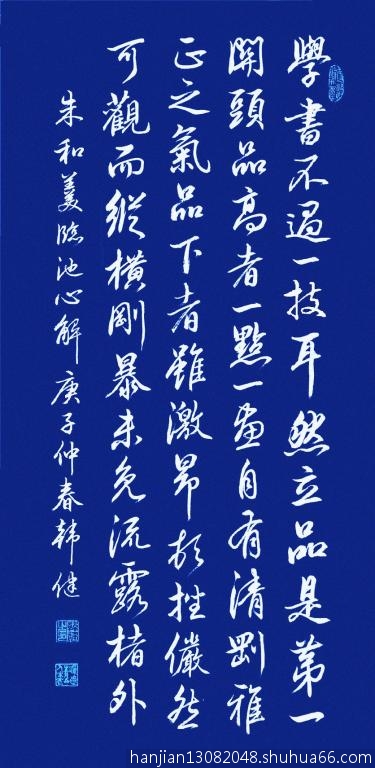 學書不過一技耳然立品是第一
關頭品高者一點一畫自有清剛雅
正之氣品下者雖激昂頓挫儼然
可觀而縱橫剛暴未免流露楮外
朱和羹臨池心解 庚子仲春韓健
hanjian13082048.shuhua66.com